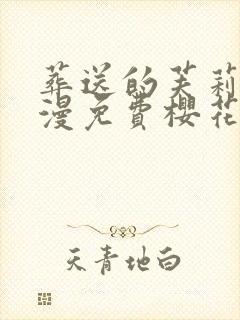 葬送的芙莉
漫免费樱花
天青地白